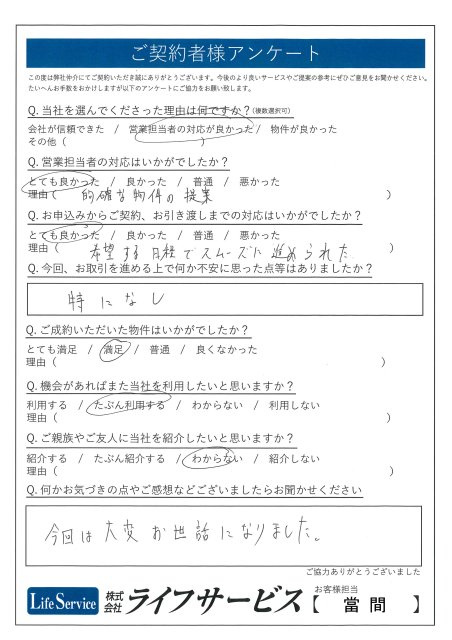 ご契約者様アンケート
この度は弊社仲介にてご契約いただき誠にありがとうございます。今後のより良いサービスやご提案の参考にぜひご意見をお聞かせください。
たいへんお手数をおかけしますが以下のアンケートにご協力をお願い致します。
Q. 当社を選んでくださった理由は何ですか？(複数選択可)
会社が信頼できた / 営業担当者の対応が良かった / 物件が良かった
その他（ ）
Q. 営業担当者の対応はいかがでしたか？
とても良かった / 良かった / 普通 / 悪かった
理由（ 的確な物件の提案 ）
Q. お申込みからご契約、お引き渡しまでの対応はいかがでしたか？
とても良かった / 良かった / 普通 / 悪かった
理由（ 希望する日程でスムーズに進められた ）
Q. 今回、お取引を進める上で何か不安に思った点等はありましたか？
特になし
Q. ご成約いただいた物件はいかがでしたか？
とても満足 / 満足 / 普通 / 良くなかった
理由（ ）
Q. 機会があればまた当社を利用したいと思いますか？
利用する / たぶん利用する / わからない / 利用しない
理由（ ）
Q. ご親族やご友人に当社を紹介したいと思いますか？
紹介する / たぶん紹介する / わからない / 紹介しない
理由（ ）
Q. 何かお気づきの点やご感想などございましたらお聞かせください
今回は大変お世話になりました。
ご協力ありがとうございました
Life Service 株式会社 ライフサービス
お客様担当
【 當間 】